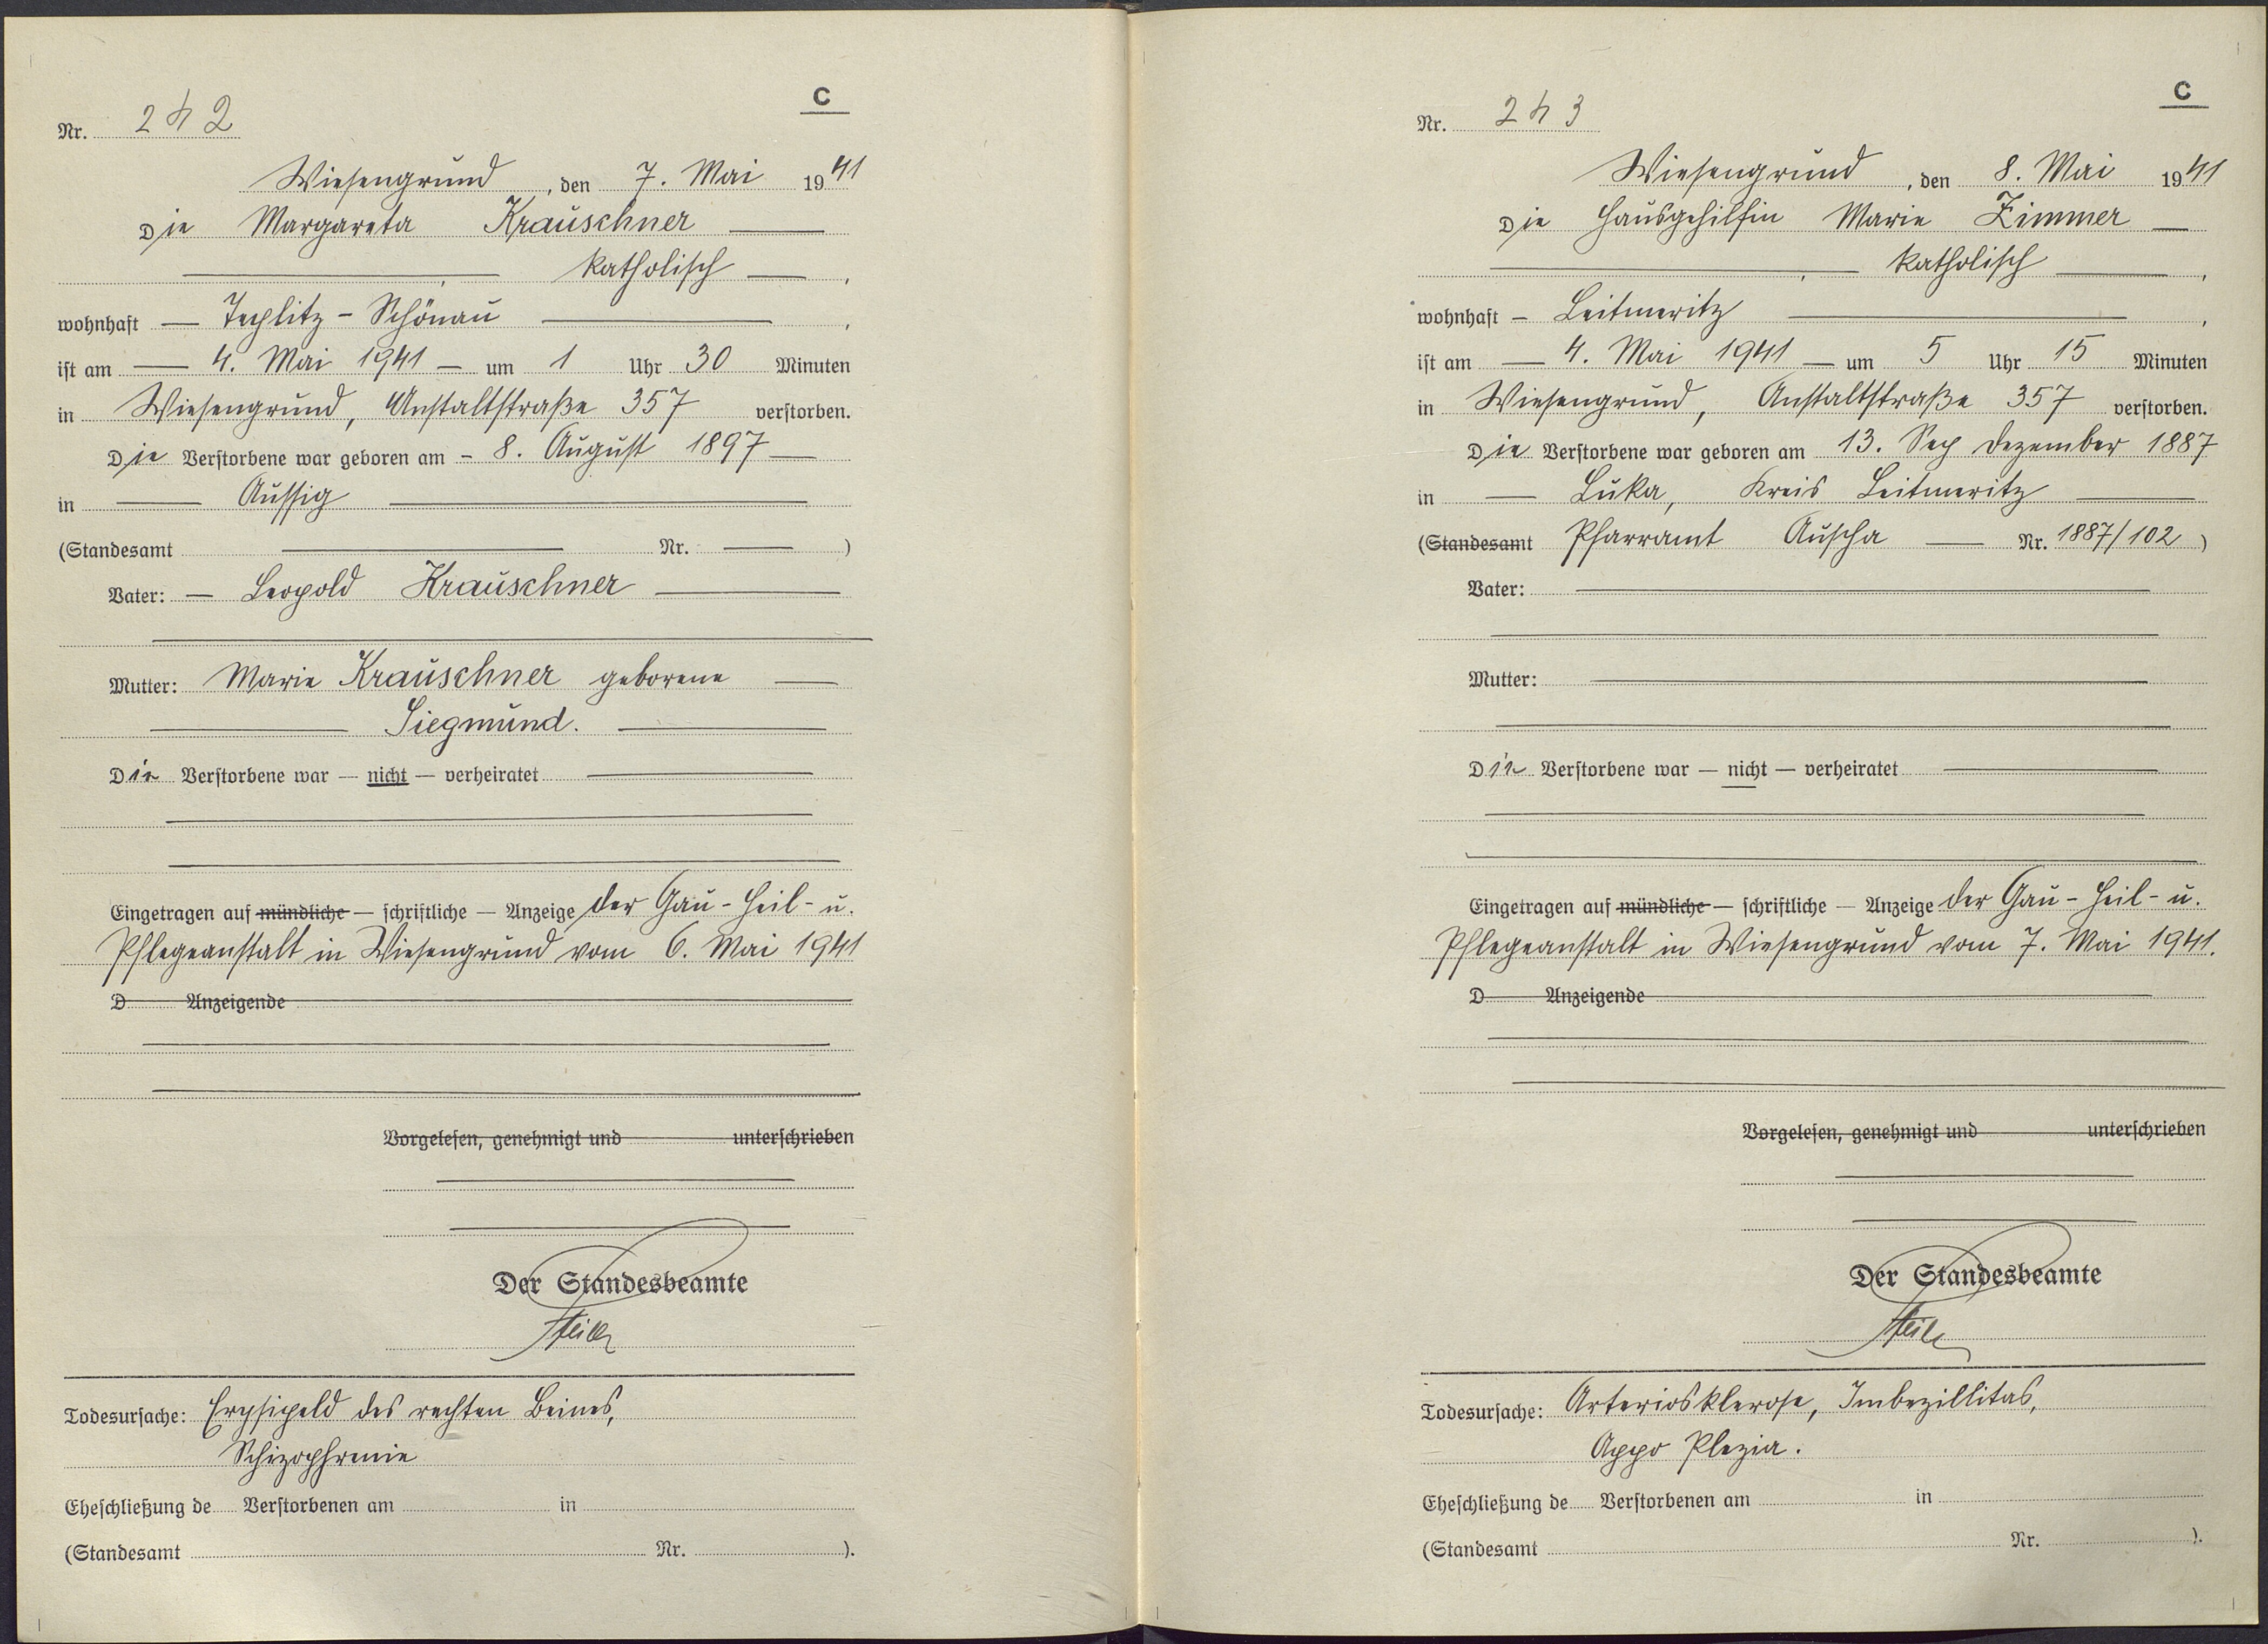 C
Nr. 242
Wiesengrund, den 7. Mai 1941
Die Margareta Krauschner —
— , — katholisch — ,
wohnhaft — Teplitz - Schönau — ,
ist am — 4. Mai 1941 — um 1 Uhr 30 Minuten
in Wiesengrund, Anstaltstraße 357 verstorben.
Die Verstorbene war geboren am - 8. August 1897 —
in — Aussig —
(Standesamt — Nr. — )
Vater: — Leopold Krauschner —
Mutter: Marie Krauschner geborene —
— Siegmund. —
Die Verstorbene war — nicht — verheiratet —
Eingetragen auf mündliche — schriftliche — Anzeige der Gau - Heil - u.
Pflegeanstalt in Wiesengrund vom 6. Mai 1941
D Anzeigende
Vorgelesen, genehmigt und unterschrieben
Der Standesbeamte
Todesursache: Erysipeld des rechten Beines,
Schizophrenie
Eheschließung de Verstorbenen am in
(Standesamt Nr. ).
C
Nr. 243
Wiesengrund, den 8. Mai 1941
Die Hausgehilfin Marie Zimmer —
— , — katholisch — ,
wohnhaft - Leitmeritz — ,
ist am — 4. Mai 1941 — um 5 Uhr 15 Minuten
in Wiesengrund, Anstaltstraße 357 verstorben.
Die Verstorbene war geboren am 13. Sep Dezember 1887
in — Luka, Kreis Leitmeritz —
(Standesamt Pfarramt Auscha — Nr. 1887/102 )
Vater: —
Mutter: —
Die Verstorbene war — nicht — verheiratet —
Eingetragen auf mündliche — schriftliche — Anzeige der Gau - Heil - u.
Pflegeanstalt in Wiesengrund vom 7. Mai 1941.
D Anzeigende
Vorgelesen, genehmigt und unterschrieben
Der Standesbeamte
Todesursache: Arteriosklerose, Imbezillitas,
Appo Plezia.
Eheschließung de Verstorbenen am in
(Standesamt Nr. ).